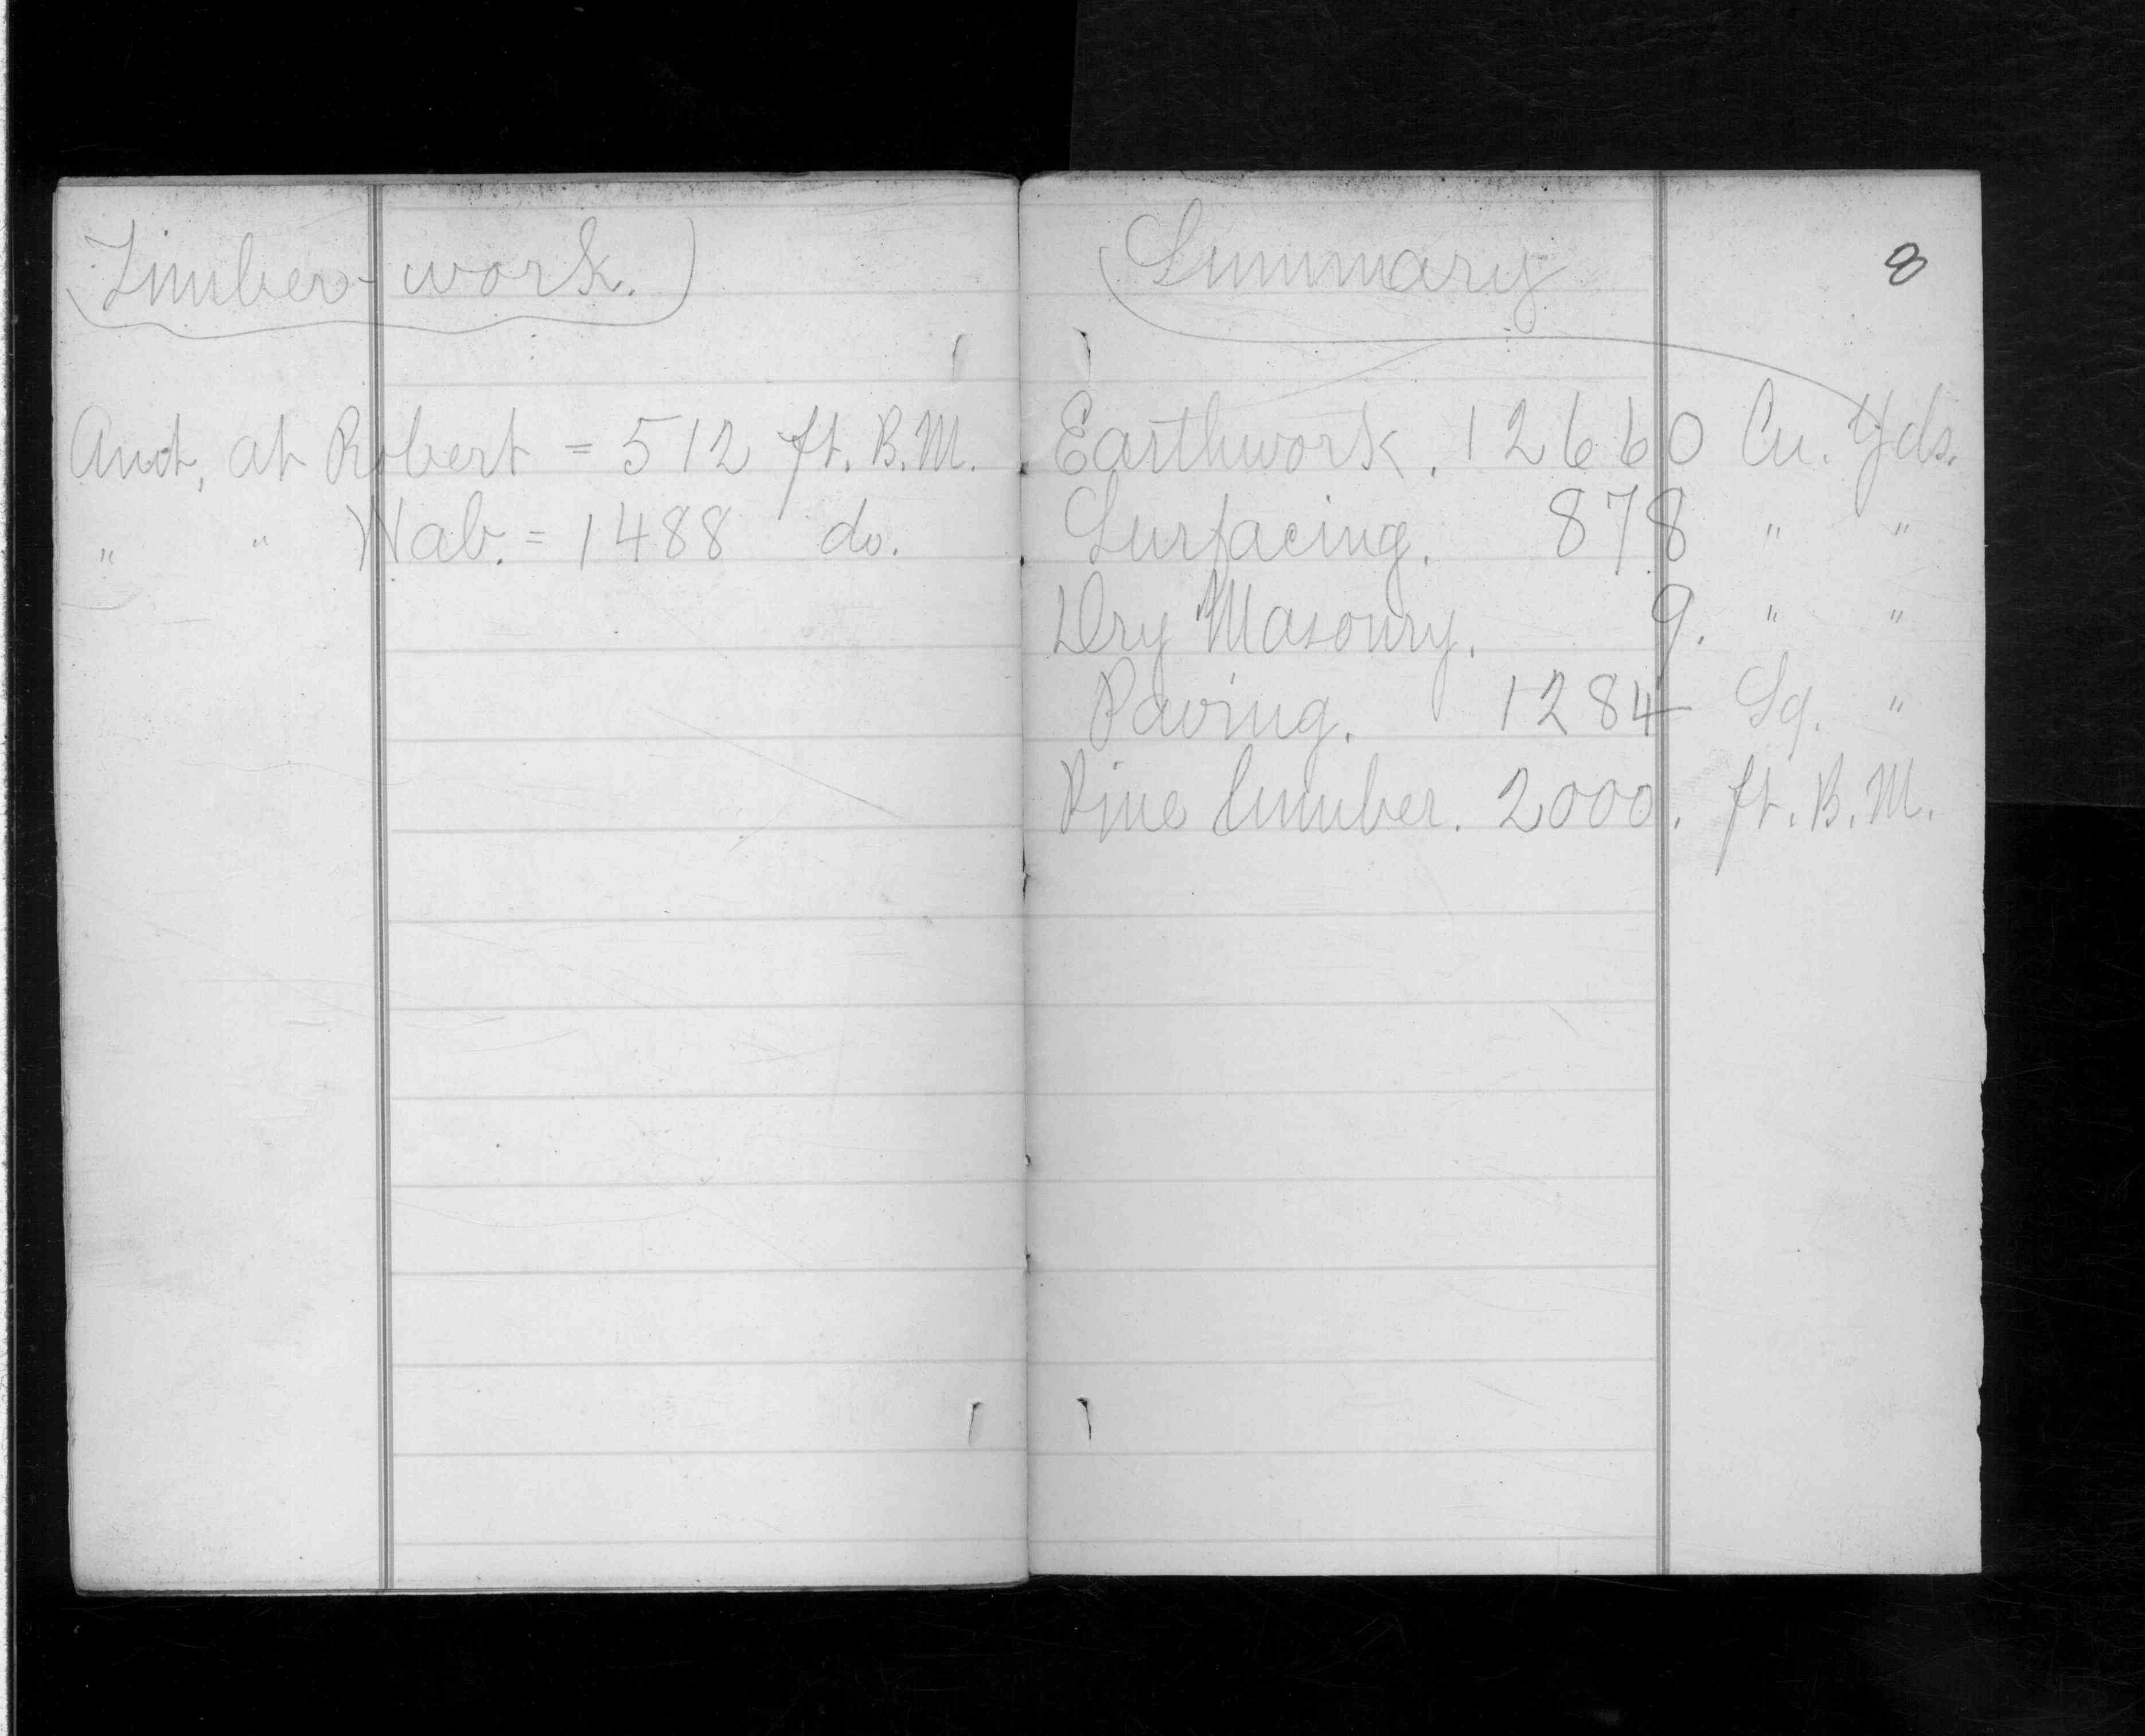 Timber-work.
Amt, at Robert = 512 ft. B.M.
" " Wab. = 1488 do.
Summary
8
Earthwork. 12660 Cu. Yds.
Surfacing. 878 " "
Dry Masonry. 9. " "
Paving. 1284 Sq. "
Pine lumber. 2000. ft. B.M.